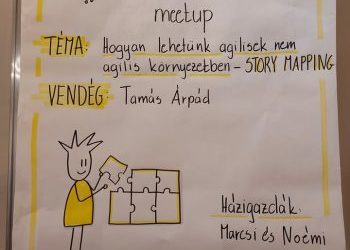 meetup
TÉMA: Hogyan lehetünk agilisek nem
agilis környezetben – STORY MAPPING
VENDÉG: Tamás Árpád
Házigazdák:
Marcsi és Noémi